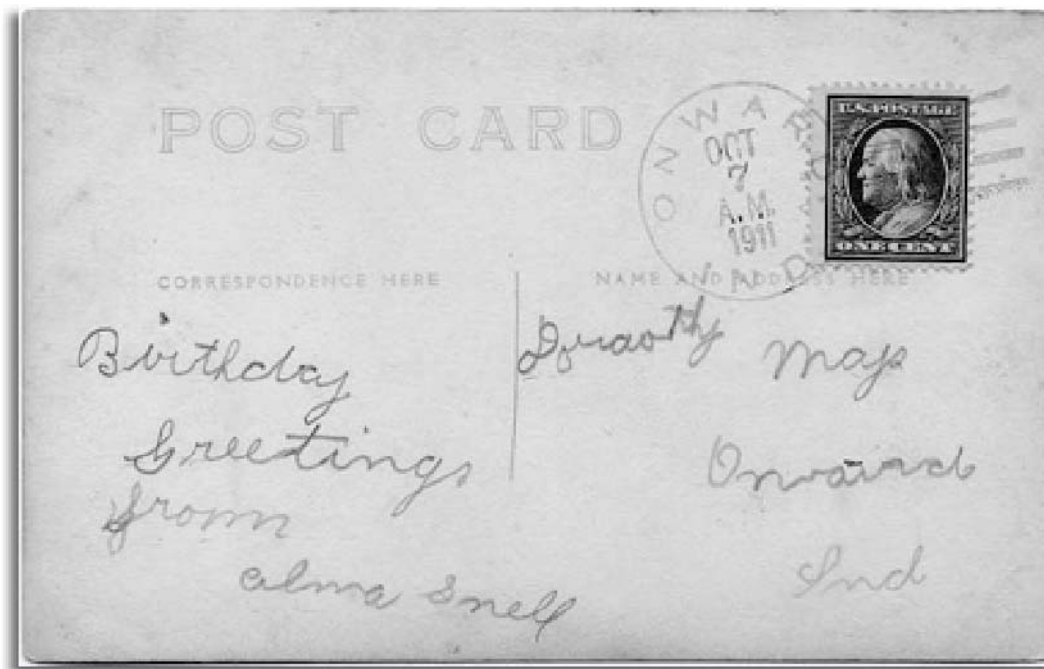 POST CARD
ONWARD
OCT
7
A.M.
1911
IND.
U.S. POSTAGE
ONE CENT
CORRESPONDENCE HERE
NAME AND ADDRESS HERE
Birthday
Greetings
from
alma Snell
Doraothy
Onward
Ind